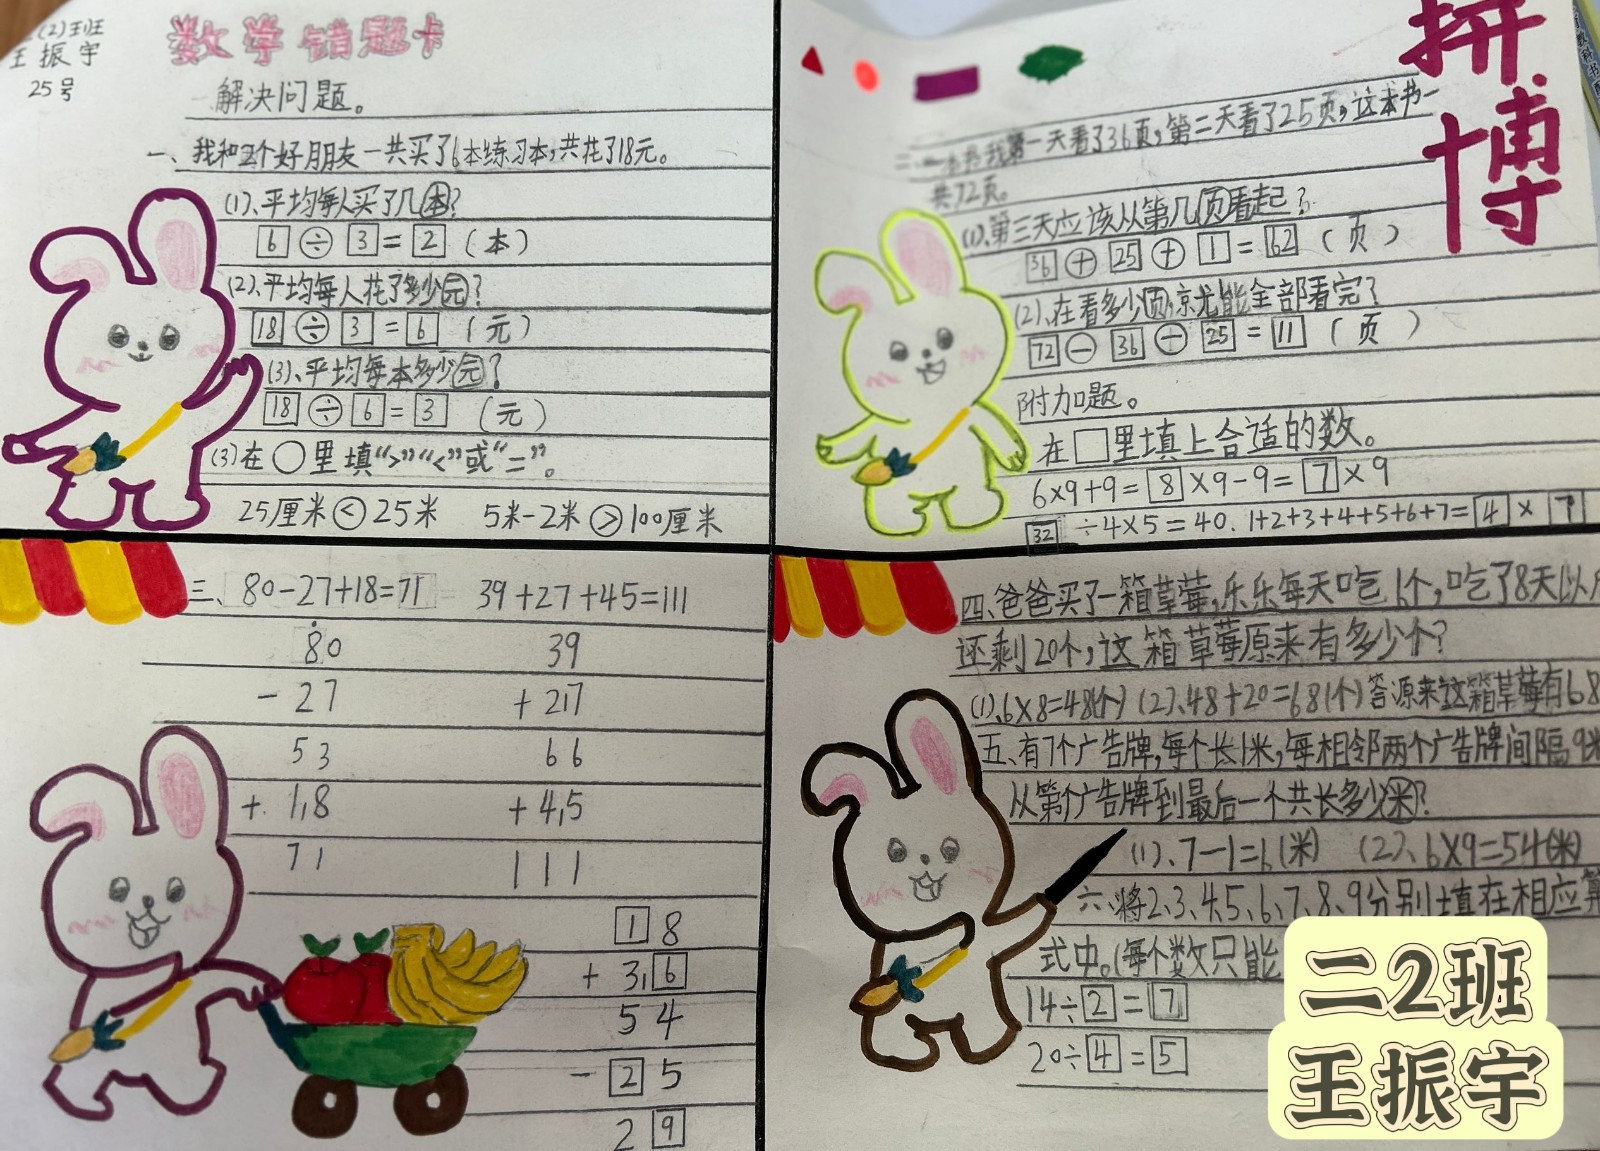 (2)班
王振宇
25号
数学错题卡
解决问题。
一、我和2个好朋友一共买了6本练习本,共花了18元。
(1)、平均每人买了几本?
6÷3=2(本)
(2)、平均每人花了多少元?
18÷3=6(元)
(3)、平均每本多少元?
18÷6=3(元)
(3)在○里填“>”“<”或“=”。
25厘米<25米 5米-2米>100厘米
拼博
二、一本书我第一天看了36页,第二天看了25页,这本书一
共72页。
(1)、第三天应该从第几页看起?
36+25+1=62(页)
(2)、在看多少页,就能全部看完?
72-36-25=11(页)
附加题。
在□里填上合适的数。
6×9+9=8×9-9=7×9
32÷4×5=40. 1+2+3+4+5+6+7=4×7
三、80-27+18=71 39+27+45=111
80 39
-27 +27
53 66
+18 +45
71 111
18
+36
54
-25
29
四、爸爸买了一箱草莓,乐乐每天吃6个,吃了8天以
还剩20个,这箱草莓原来有多少个?
(1)、6×8=48(个) (2)、48+20=68(个) 答源来这箱草莓有68
五、有7个广告牌,每个长1米,每相邻两个广告牌间隔9米
从第个广告牌到最后一个共长多少米?
(1)、7-1=6(米) (2)、6×9=54(米)
六、将2、3、4、5、6、7、8、9分别填在相应算
式中。(每个数只能
14÷2=7
20÷4=5
二2班
王振宇